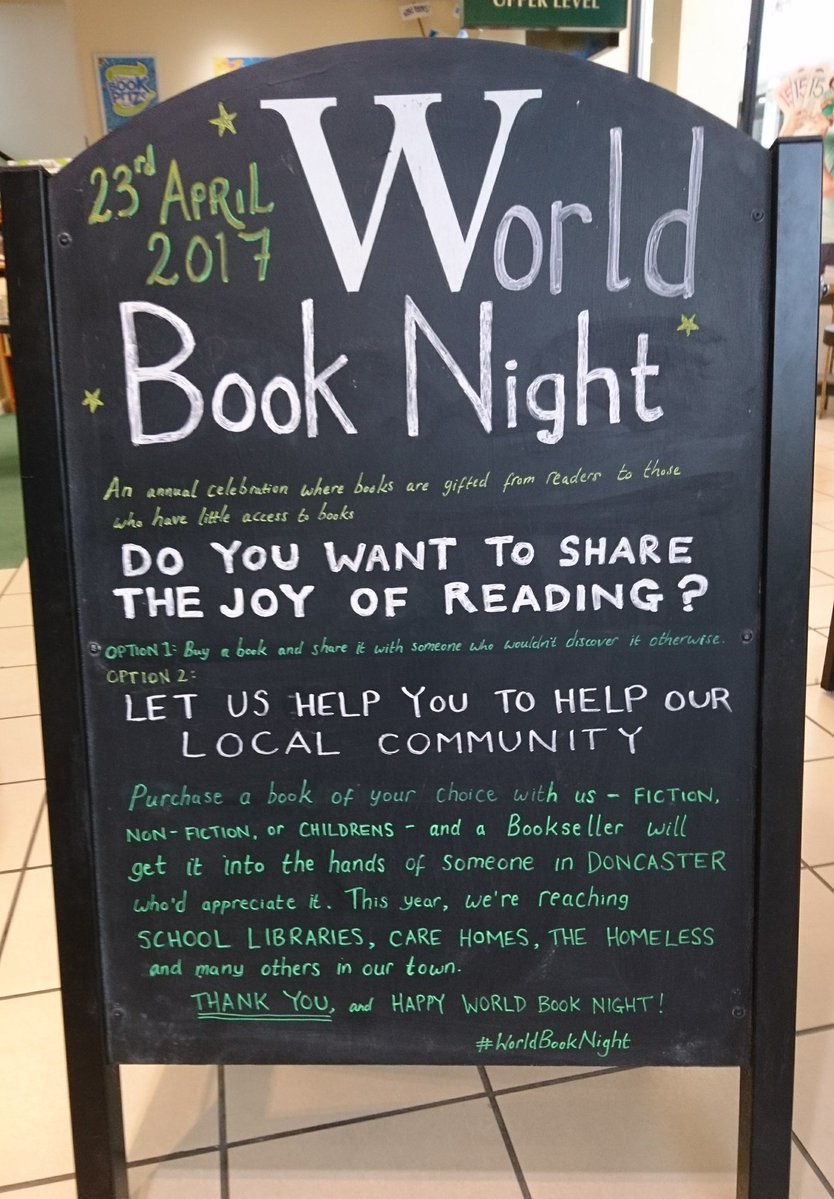 UPPER LEVEL
BOOK
23rd APRIL
2017
World
Book Night
An annual celebration where books are gifted from readers to those
who have little access to books
DO YOU WANT TO SHARE
THE JOY OF READING?
OPTION 1: Buy a book and share it with someone who wouldn't discover it otherwise.
OPTION 2:
LET US HELP YOU TO HELP OUR
LOCAL COMMUNITY
Purchase a book of your choice with us - FICTION,
NON-FICTION, or CHILDRENS - and a Bookseller will
get it into the hands of someone in DONCASTER
who'd appreciate it. This year, we're reaching
SCHOOL LIBRARIES, CARE HOMES, THE HOMELESS
and many others in our town.
THANK YOU, and HAPPY WORLD BOOK NIGHT!
#WorldBookNight